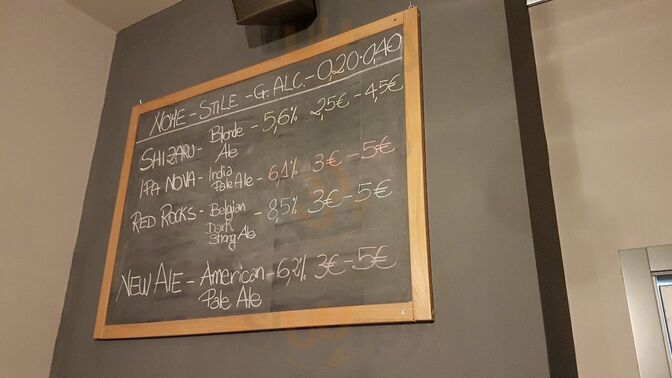 NOME - STILE - G. ALC. - 0,20 - 0,40
SHIZARU - Blonde Ale - 5,6% 2,5€ - 4,5€
IPA NOVA - India Pale Ale - 6,1% 3€ - 5€
RED ROCKS - Belgian Dark Strong Ale - 8,5% 3€ - 5€
NEW ALE - American Pale Ale - 6,2% 3€ - 5€